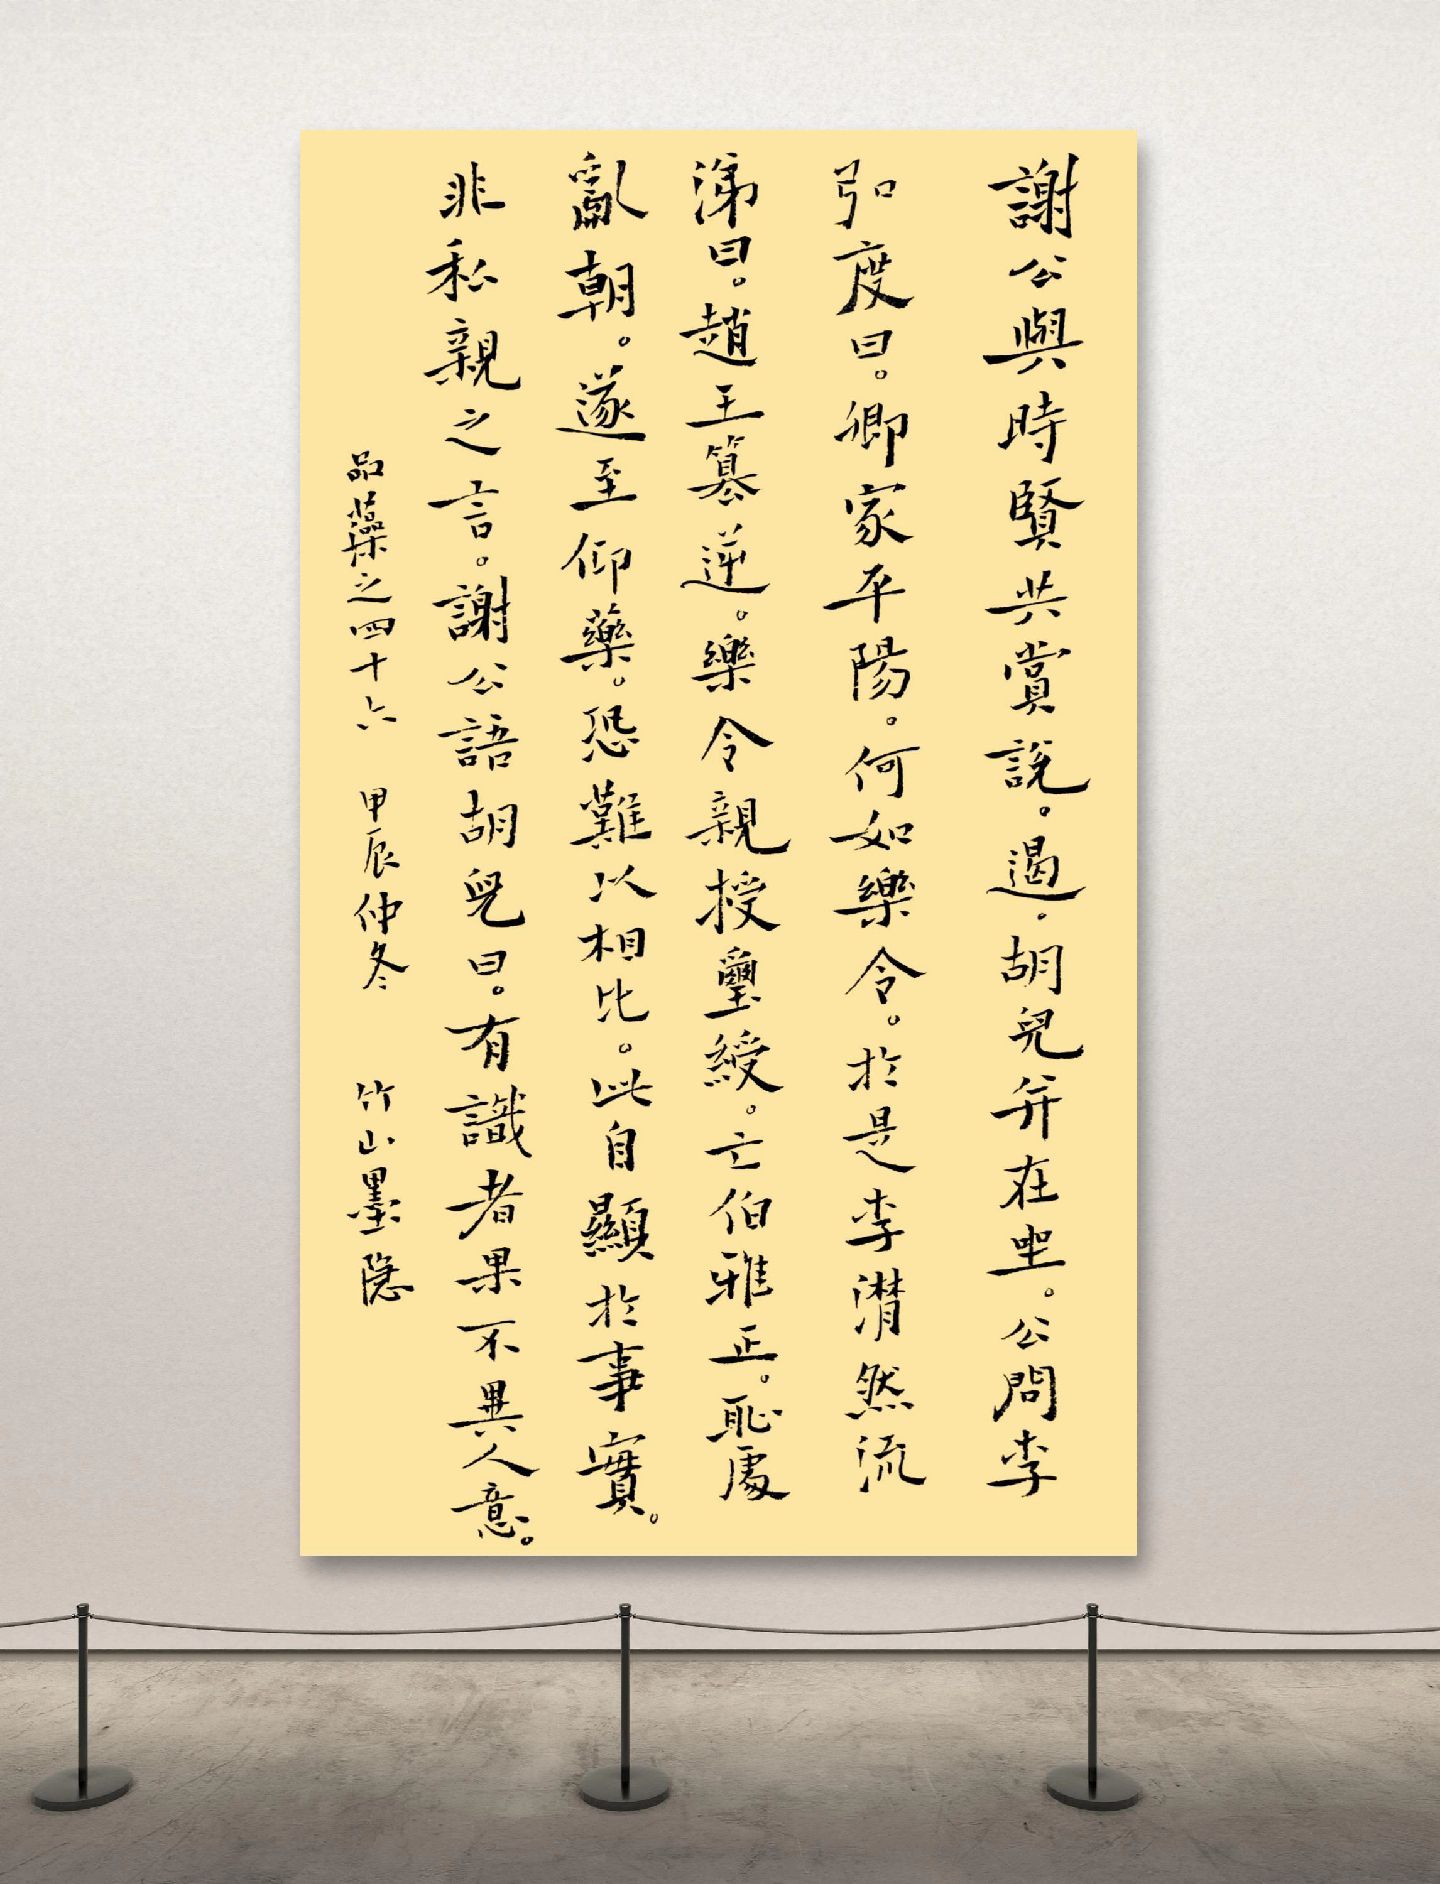 謝公與時賢共賞說。遏。胡兒并在坐。公問李
弘度曰。卿家平陽。何如樂令。於是李潸然流
涕曰。趙王篡逆。樂令親授璽綬。亡伯雅正。恥處
亂朝。遂至仰藥。恐難以相比。此自顯於事實。
非私親之言。謝公語胡兒曰。有識者果不異人意。
品藻之四十六 甲辰仲冬 竹山墨隱